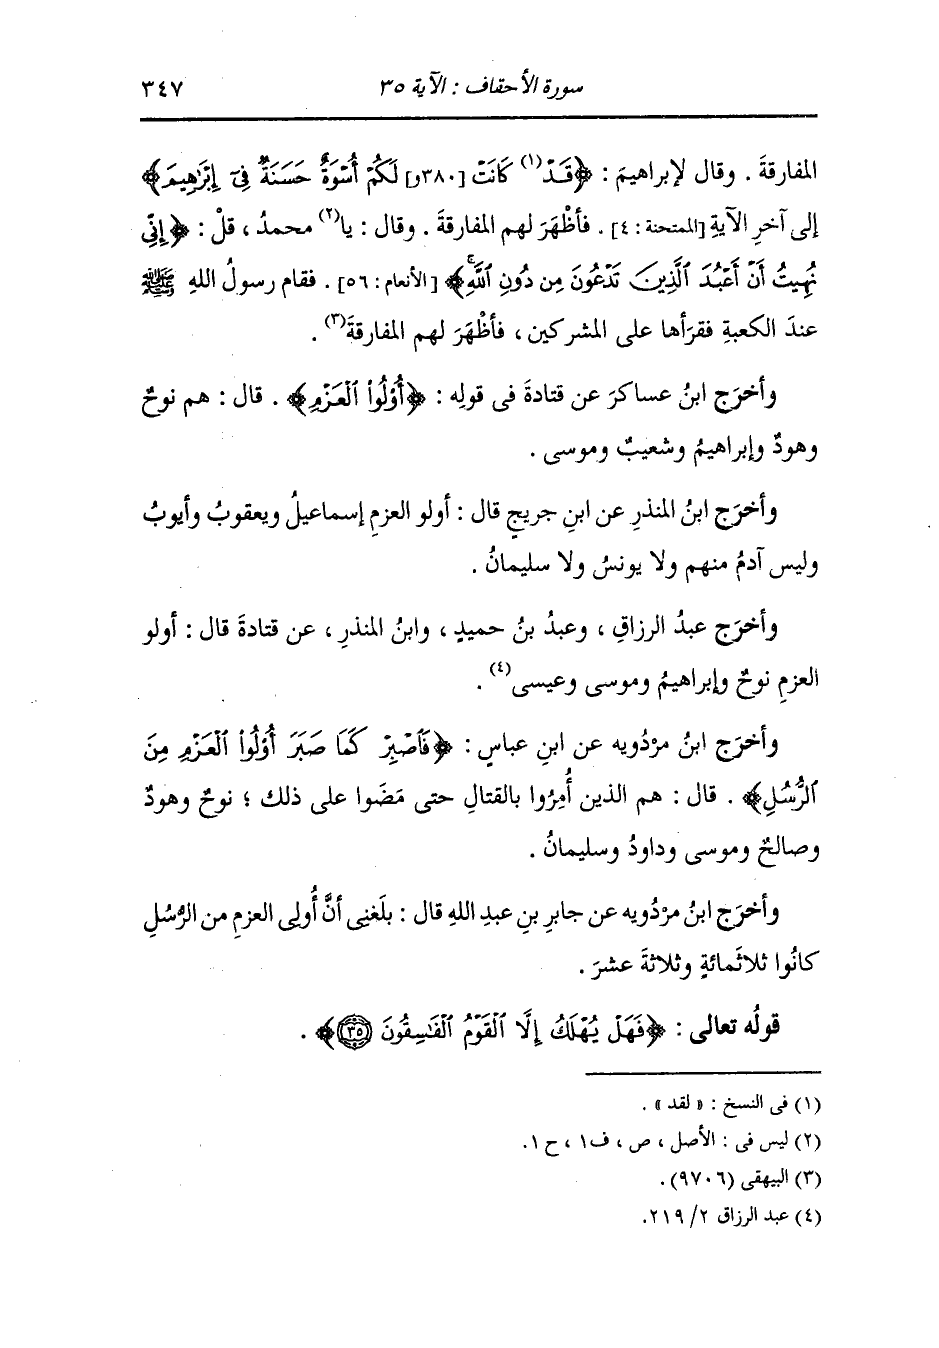 سورة الأحقاف : الآية ٣٥ ٣٤٧
المفارقةَ . وقال لإبراهيمَ : ﴿قَدْ(١) كَانَتْ [٣٨٠و] لَكُمْ أُسْوَةٌ حَسَنَةٌ فِىٓ إِبْرَٰهِيمَ﴾
إلى آخرِ الآيةِ [الممتحنة : ٤] . فأظْهَرَ لهم المفارقةَ . وقال : يا(٢) محمدُ ، قلْ : ﴿إِنِّى
نُهِيتُ أَنْ أَعْبُدَ ٱلَّذِينَ تَدْعُونَ مِن دُونِ ٱللَّهِ﴾ [الأنعام : ٥٦] . فقام رسولُ اللهِ ﷺ
عندَ الكعبةِ فقرَأها على المشركين ، فأظْهَرَ لهم المفارقةَ(٣) .
وأخرَج ابنُ عساكرَ عن قتادةَ فى قولِه : ﴿أُوْلُواْ ٱلْعَزْمِ﴾ . قال : هم نوحٌ
وهودٌ وإبراهيمُ وشعيبٌ وموسى .
وأخرَج ابنُ المنذرِ عن ابنِ جريجٍ قال : أولو العزمِ إسماعيلُ ويعقوبُ وأيوبُ
وليس آدمُ منهم ولا يونسُ ولا سليمانُ .
وأخرَج عبدُ الرزاقِ ، وعبدُ بنُ حميدٍ ، وابنُ المنذرِ ، عن قتادةَ قال : أولو
العزمِ نوحٌ وإبراهيمُ وموسى وعيسى(٤) .
وأخرَج ابنُ مرْدُويه عن ابنِ عباسٍ : ﴿فَٱصْبِرْ كَمَا صَبَرَ أُوْلُواْ ٱلْعَزْمِ مِنَ
ٱلرُّسُلِ﴾ . قال : هم الذين أُمِرُوا بالقتالِ حتى مَضَوا على ذلك ؛ نوحٌ وهودٌ
وصالحٌ وموسى وداودُ وسليمانُ .
وأخرَج ابنُ مرْدُويه عن جابرِ بنِ عبدِ اللهِ قال : بلَغنِى أنَّ أُولِى العزمِ من الرُّسُلِ
كانُوا ثلاثَمائةٍ وثلاثةَ عشرَ .
قولُه تعالى : ﴿فَهَلْ يُهْلَكُ إِلَّا ٱلْقَوْمُ ٱلْفَٰسِقُونَ ٣٥﴾ .
(١) فى النسخ : « لقد » .
(٢) ليس فى : الأصل ، ص ، ف١ ، ح١.
(٣) البيهقى (٩٧٠٦).
(٤) عبد الرزاق ٢/ ٢١٩.